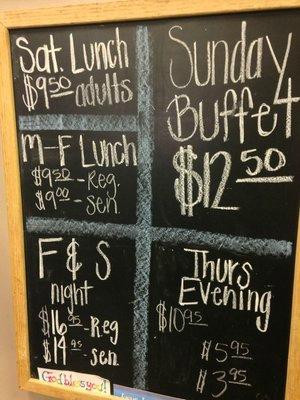 Sat. Lunch
$9.50 adults
M-F Lunch
$9.50 - Reg.
$9.00 - Sen.
F & S
night
$16.95 - Reg
$14.95 - sen
God bless you!
Sunday
Buffet
$12.50
Thurs
Evening
$10.95
$5.95
$3.95